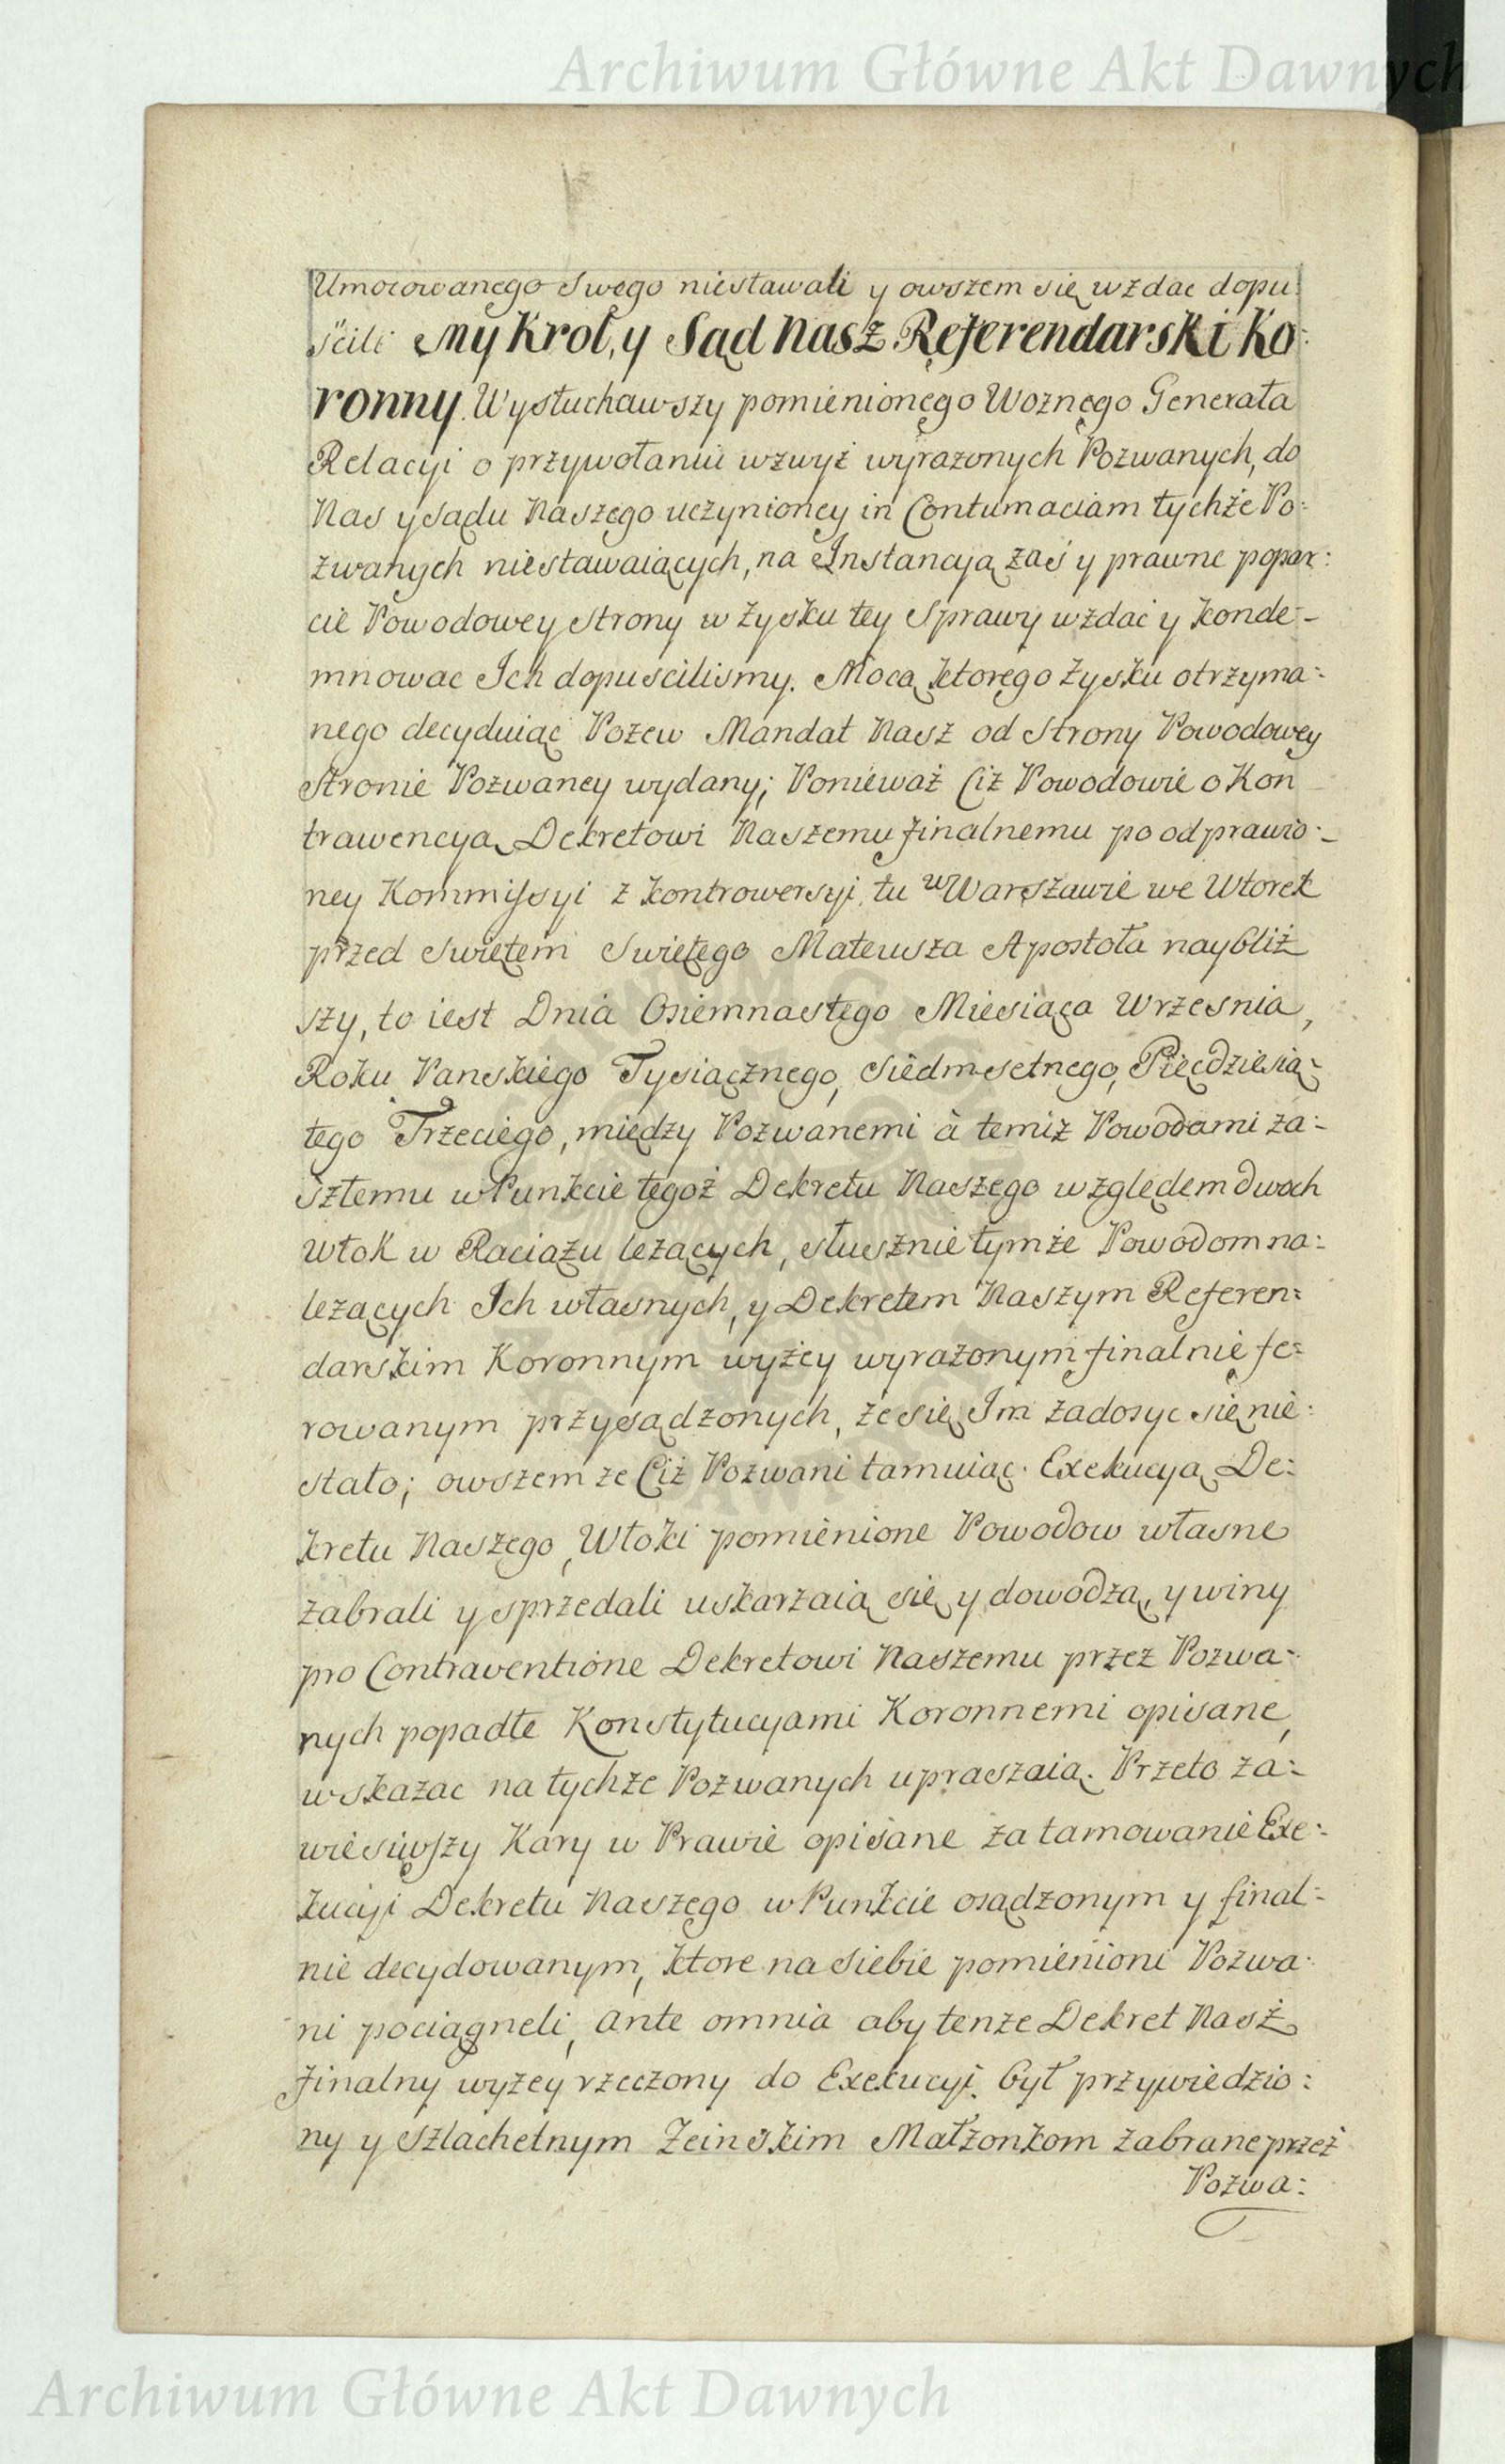 Archiwum Główne Akt Dawnych
Umocowanego Swego niestawali y owszem się wzdac dopu:
ścili My Krol, y Sąd Nasz Referendarski Ko:
ronny Wysłuchawszy pomienionego Woznego Generała
Relacyi o przywołaniu wzwyż wyrazonych Pozwanych, do
Nas y sądu Naszego uczynioney in Contumaciam tychże Po:
zwanych niestawaiących, na Instancyą zaś y prawne popar:
cie Powodowey strony w zysku tey Sprawy wzdać y konde-
mnowac Ich dopuscilismy. Mocą ktorego zysku otrzyma:
nego decyduiąc Pozew Mandat Nasz od Strony Powodowey
Stronie Pozwaney wydany; Ponieważ Ciż Powodowie o Kon
trawencyą Dekretowi Naszemu finalnemu po odprawio:
ney Kommissyi z kontrowersyi, tu w Warszawie we Wtorek
przed Swiętem Swiętego Mateusza Apostoła naybliż
szy, to iest Dnia Osiemnastego Miesiąca Wrzesnia,
Roku Panskiego Tysiącznego, Siedmsetnego, Pięcdziesią
tego Trzeciego, między Pozwanemi à temiż Powodami za:
szłemu w Punkcie tegoż Dekretu Naszego względem dwoch
Włok w Raciązu leżących, słusznie tymże Powodom na:
leżących Ich własnych, y Dekretem Naszym Referen:
darskim Koronnym wyżey wyrazonym finalnie fe:
rowanym przysądzonych, że się Im zadosyc się nie:
stało; owszem ze Ciż Pozwani tamuiąc Exekucyą De:
kretu Naszego, Włoki pomienione Powodow własne
zabrali y sprzedali uskarzaią się y dowodzą, y winy
pro Contraventione Dekretowi Naszemu przez Pozwa:
nych popadłe Konstytucyami Koronnemi opisane,
wskazac na tychże Pozwanych upraszaią. Przeto za:
wiesiwszy Kary w Prawie opisane za tamowanie Exe:
kucyi Dekretu Naszego w Punkcie osądzonym y final:
nie decydowanym, ktore na siebie pomienioni Pozwa:
ni pociągneli, ante omnia aby tenże Dekret Nasz
finalny wyżey rzeczony do Exekucyi był przywiedzio:
ny y Szlachetnym Zeinskim Małżonkom zabrane przez
Pozwa:
Archiwum Główne Akt Dawnych